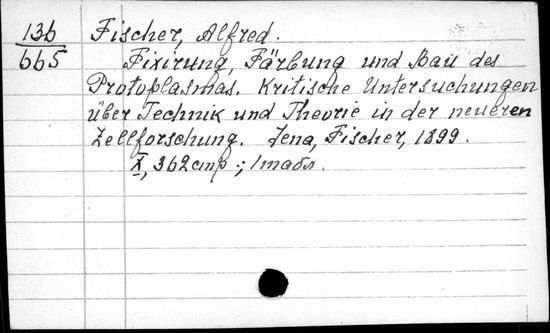 136
665
Fischer, Alfred.
Fixirung, Färbung und Bau des
Protoplasmas. Kritische Untersuchungen
über Technik und Theorie in der neueren
Zellforschung. Jena, Fischer, 1899.
X, 362 стр.; 1 табл.